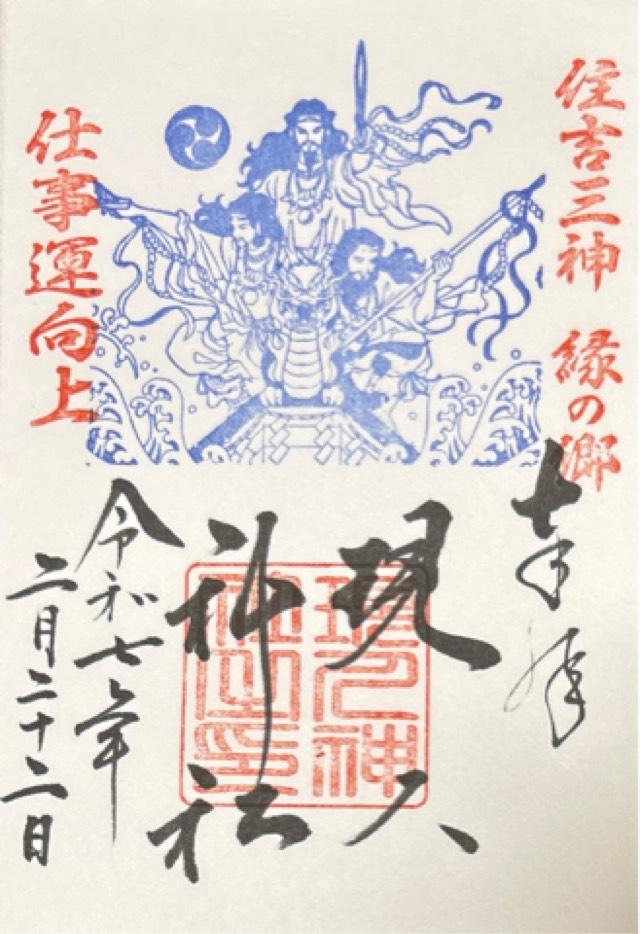 住吉三神 縁の郷
仕事運向上
奉拝
現人
神社
現人神
社之印
令和七年
二月二十二日